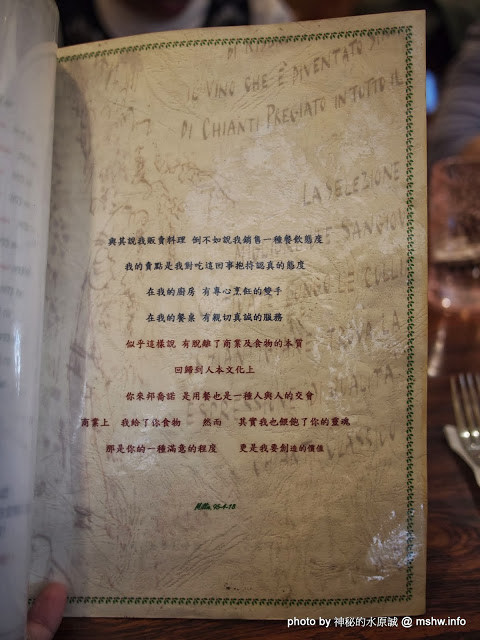 DI
IL VINO CHE È DIVENTATO
DI CHIANTI PREGIATO IN TUTTO IL
LA SELEZIONE
SANGIOV
與其說我販賣料理 倒不如說我銷售一種餐飲態度
我的賣點是我對吃這回事抱持認真的態度
在我的廚房 有專心烹飪的雙手
在我的餐桌 有親切真誠的服務
似乎這樣說 有脫離了商業及食物的本質
回歸到人本文化上
你來邦喬諾 是用餐也是一種人與人的交會
商業上 我給了你食物 然而 其實我也餵飽了你的靈魂
那是你的一種滿意的程度 更是我要創造的價值
photo by 神秘的水原誠 @ mshw.info